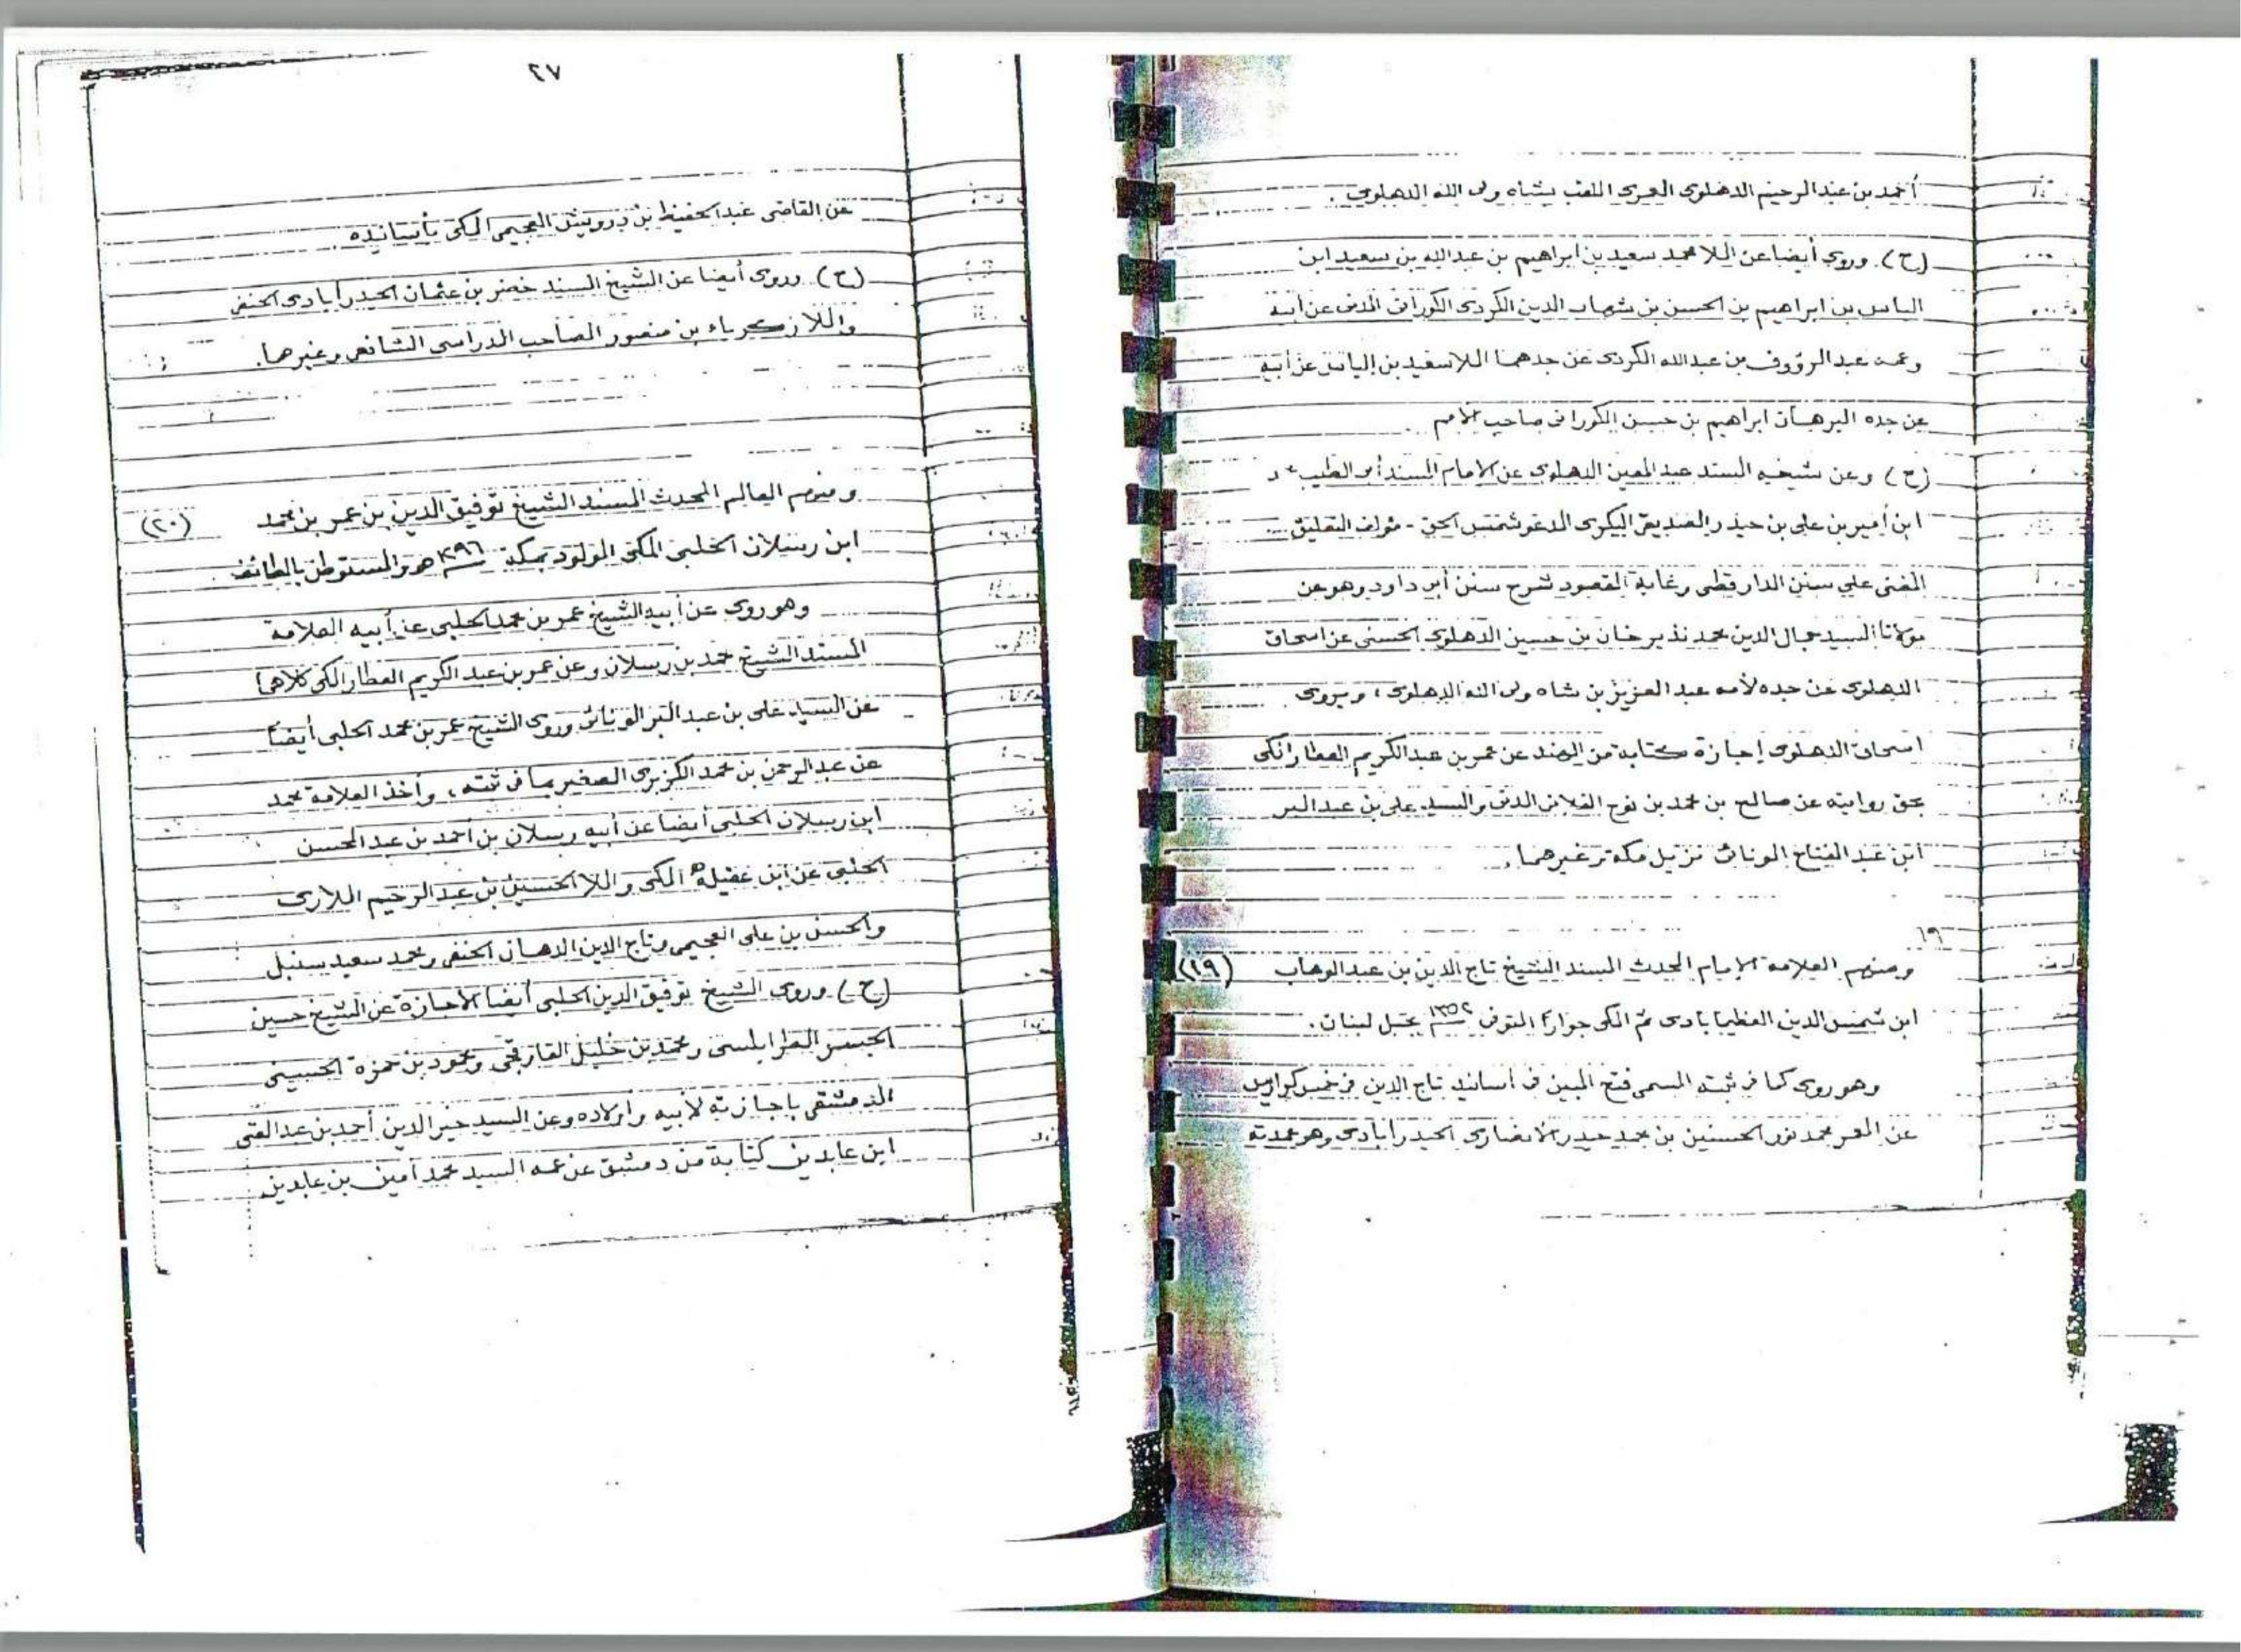 أحمد بن عبد الرحيم الدهلوى العمرى الملقب بشاه ولى الله الدهلوى .
(ح) وروى أيضا عن الملا محمد سعيد بن ابراهيم بن عبد الله بن سعيد ابن
الياس بن ابراهيم بن الحسن بن شهاب الدين الكردى الكورانى المدنى عن أبيه
وعمه عبد الرؤوف بن عبد الله الكردى عن جدهما الملا سعيد بن إلياس عن أبيه
عن جده البرهان ابراهيم بن حسن الكورانى صاحب الأمم
(ح) وعن شيخه المسند عبد المعين الدهلوى عن الامام المسند أبى الطيب
ابن أمير بن على بن حيدر الصديقى البكرى المدعو شمس الحق - مؤلف التعليق
المغنى على سنن الدارقطنى وغاية المقصود شرح سنن أبى داود وهو عن
مولانا السيد جمال الدين محمد نذير خان بن حسين الدهلوى الحسنى عن اسحاق
الدهلوى عن جده لأمه عبد العزيز بن شاه ولى الله الدهلوى ، ويروى
اسحاق الدهلوى إجازة كتابة من الهند عن عمر بن عبد الكريم العطار المكى
بحق روايته عن صالح بن محمد بن نوح الفلانى المدنى والسيد على بن عبد البر
ابن عبد الفتاح الونائى نزيل مكة وغيرهما .
١٩
ومنهم العلامة الإمام المحدث المسند الشيخ تاج الدين بن عبد الوهاب (١٩)
ابن شمس الدين العظيمابادى ثم المكى جوارًا المتوفى ١٣٥٢ بجبل لبنان .
وهو روى كما فى ثبته المسمى فتح المبين فى أسانيد تاج الدين فى خمس كراريس
عن المعمر محمد نور الحسنين بن محمد حيدر الانصارى الحيدرابادى وهو عمدته
٢٧
عن القاضى عبد الحفيظ بن درويش العجيمى المكى بأسانيده
(ح) وروى أيضا عن الشيخ المسند خضر بن عثمان الحيدرأبادى الحنفى
والملا زكرياء بن منصور الصاحب المدراسى الشافعى وغيرهما .
ومنهم العالم المحدث المسند الشيخ توفيق الدين بن عمر بن محمد (٢٠)
ابن رسلان الحلبى المكى المولود بمكة هـ والمستوطن بالطائف
وهو روى عن أبيه الشيخ عمر بن محمد الحلبى عن أبيه العلامة
المسند الشيخ محمد بن رسلان وعن عمر بن عبد الكريم العطار المكى كلاهما
عن السيد على بن عبد البر الونائى وروى الشيخ عمر بن محمد الحلبى أيضاً
عن عبد الرحمن بن محمد الكزبرى الصغير بما فى ثبته ، وأخذ العلامة محمد
ابن رسلان الحلبى أيضا عن أبيه رسلان بن أحمد بن عبد المحسن
الحلبى عن ابن عقيلة المكى والملا الحسين بن عبد الرحيم اللارى
والحسن بن على العجيمى وتاج الدين الدهان الحنفى ومحمد سعيد سنبل
(ح) وروى الشيخ توفيق الدين الحلبى أيضا الأجازة عن الشيخ حسين
الجسر الطرابلسى ومحمد بن خليل القاوقجى ومحمود بن حمزة الحسينى
الدمشقى باجازته لأبيه وأولاده وعن السيد خير الدين أحمد بن عبد الغنى
ابن عابدين كتابة من دمشق عن عمه السيد محمد أمين بن عابدين